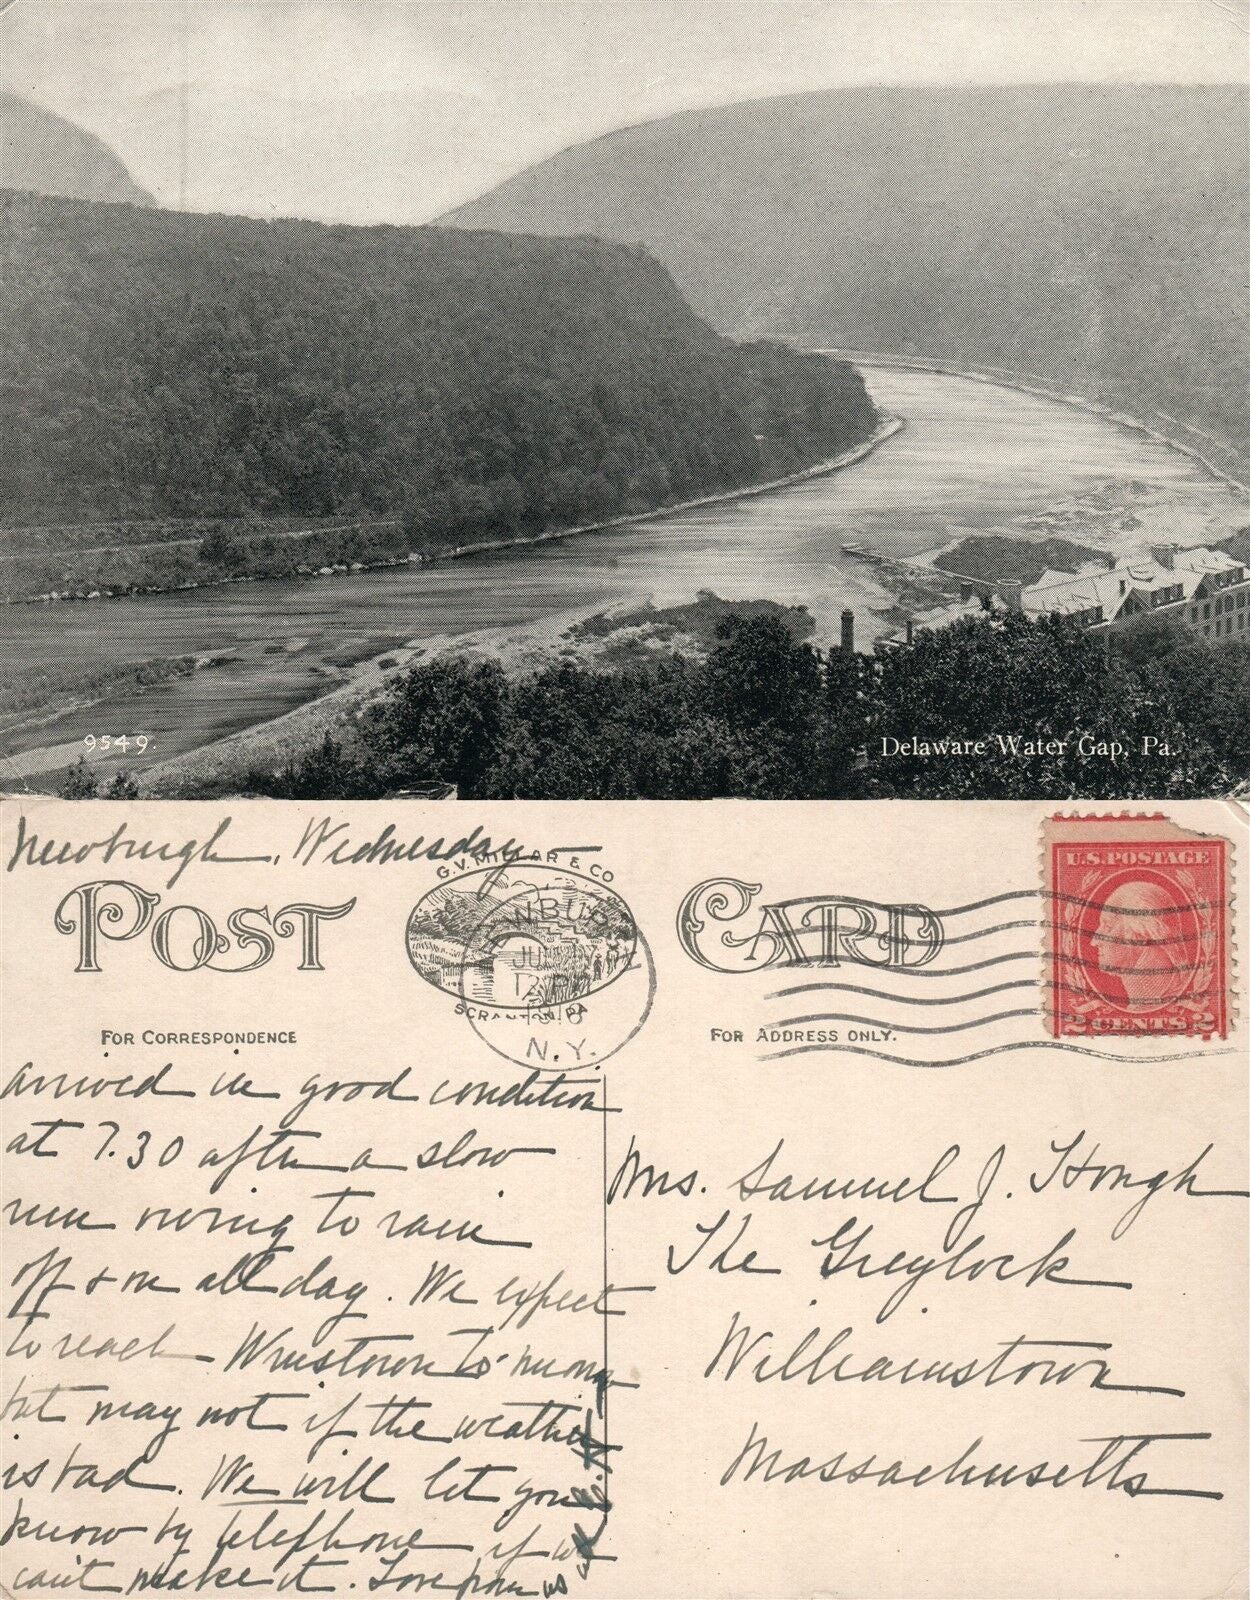 9549.
Delaware Water Gap, Pa.
Newburgh, Wednesday
G.V. MILLAR & CO
SCRANTON PA
POST CARD
NEWBURGH
N.Y.
U.S. POSTAGE
2 CENTS 2
FOR CORRESPONDENCE
FOR ADDRESS ONLY.
arrived in good condition
at 7.30 after a slow
run owing to rain
off & on all day. We expect
to reach Wmstown to'morrow
but may not if the weather
is bad. We will let you
know by telephone if we
can't make it. Love from us
Mrs. Samuel J. Hough
The Greylock
Williamstown
Massachusetts